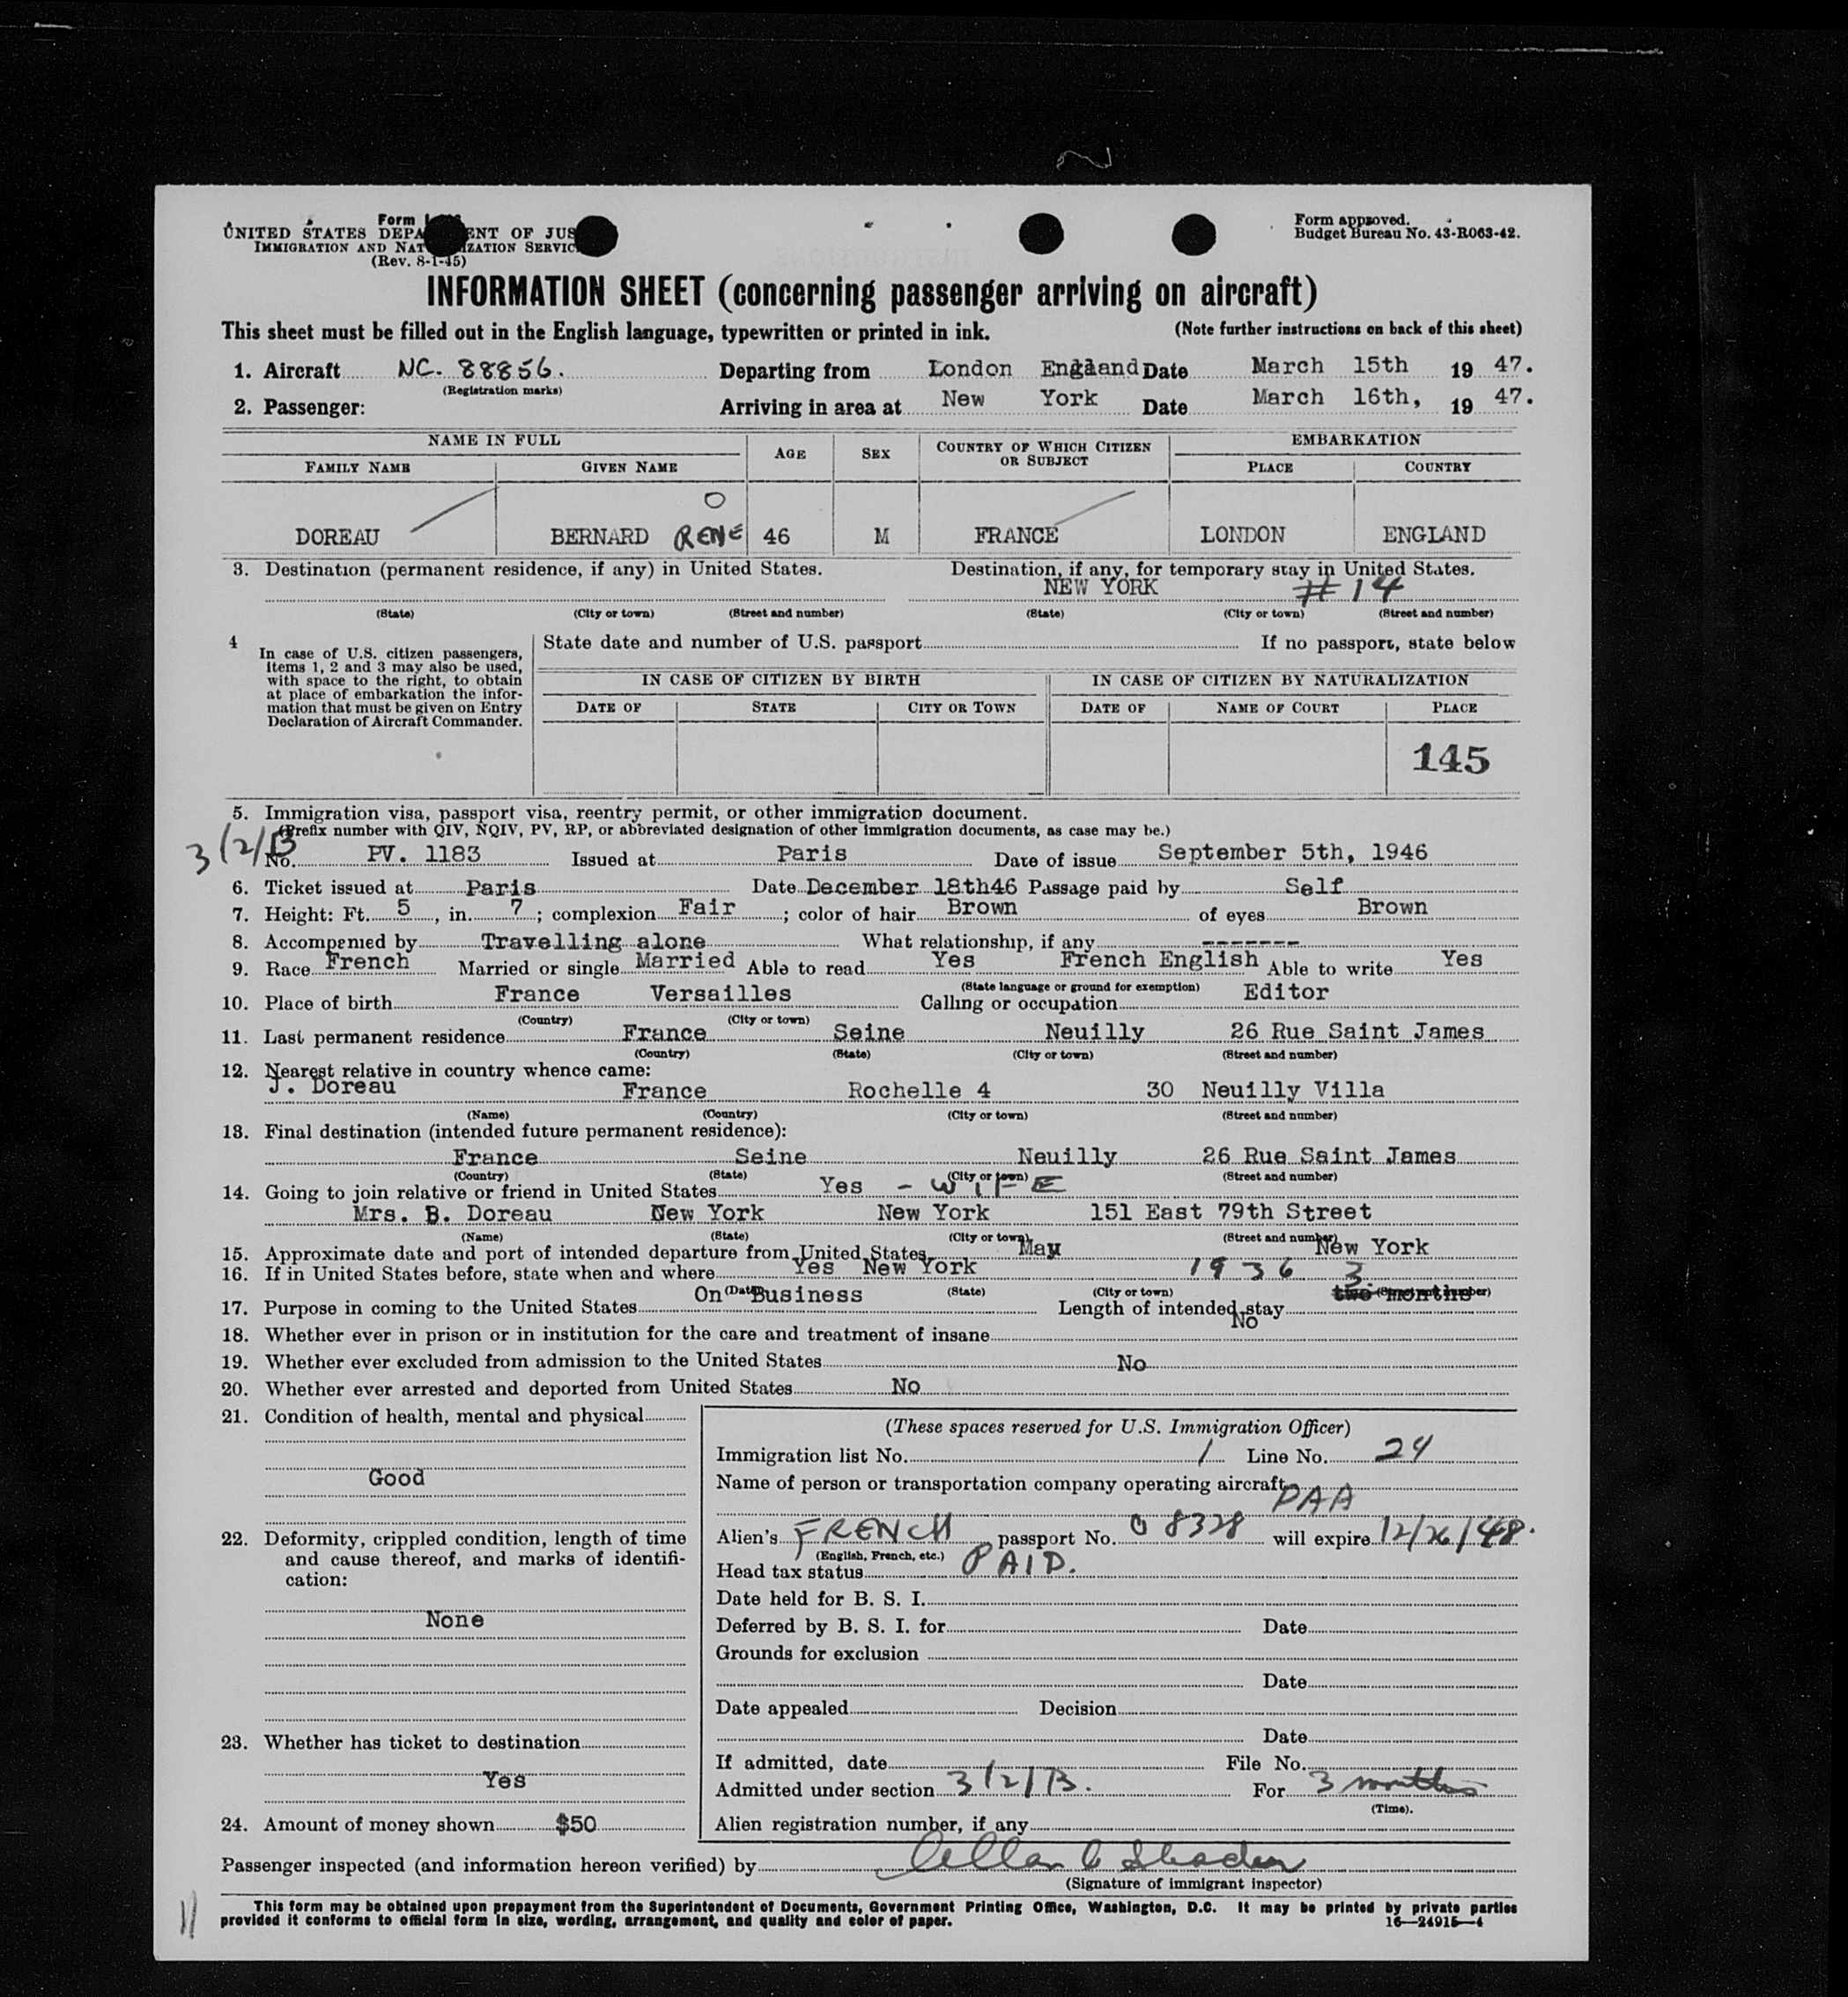 Form
UNITED STATES DEPA ENT OF JUS
IMMIGRATION AND NAT IZATION SERVIC
(Rev. 8-1-45)
Form approved.
Budget Bureau No. 43-R063-42.
INFORMATION SHEET (concerning passenger arriving on aircraft)
This sheet must be filled out in the English language, typewritten or printed in ink. (Note further instructions on back of this sheet)
1. Aircraft NC. 88856. Departing from London England Date March 15th 19 47.
(Registration marks)
2. Passenger: Arriving in area at New York Date March 16th, 19 47.
NAME IN FULL AGE SEX COUNTRY OF WHICH CITIZEN OR SUBJECT EMBARKATION
FAMILY NAME GIVEN NAME PLACE COUNTRY
O
DOREAU BERNARD RENE 46 M FRANCE LONDON ENGLAND
3. Destination (permanent residence, if any) in United States. Destination, if any, for temporary stay in United States.
NEW YORK #14
(State) (City or town) (Street and number) (State) (City or town) (Street and number)
4 In case of U.S. citizen passengers, items 1, 2 and 3 may also be used, with space to the right, to obtain at place of embarkation the information that must be given on Entry Declaration of Aircraft Commander.
State date and number of U.S. passport If no passport, state below
IN CASE OF CITIZEN BY BIRTH IN CASE OF CITIZEN BY NATURALIZATION
DATE OF STATE CITY OR TOWN DATE OF NAME OF COURT PLACE
145
5. Immigration visa, passport visa, reentry permit, or other immigration document.
(Prefix number with QIV, NQIV, PV, RP, or abbreviated designation of other immigration documents, as case may be.)
3/2/B
No. PV. 1183 Issued at Paris Date of issue September 5th, 1946
6. Ticket issued at Paris Date December 18th46 Passage paid by Self
7. Height: Ft. 5, in. 7; complexion Fair; color of hair Brown of eyes Brown
8. Accompanied by Travelling alone What relationship, if any -------
9. Race French Married or single Married Able to read Yes French English Able to write Yes
(State language or ground for exemption)
10. Place of birth France Versailles Calling or occupation Editor
(Country) (City or town)
11. Last permanent residence France Seine Neuilly 26 Rue Saint James
(Country) (State) (City or town) (Street and number)
12. Nearest relative in country whence came:
J. Doreau France Rochelle 4 30 Neuilly Villa
(Name) (Country) (City or town) (Street and number)
13. Final destination (intended future permanent residence):
France Seine Neuilly 26 Rue Saint James
(Country) (State) (City or town) (Street and number)
14. Going to join relative or friend in United States Yes - WIFE
Mrs. B. Doreau New York New York 151 East 79th Street
(Name) (State) (City or town) (Street and number)
15. Approximate date and port of intended departure from United States May New York
16. If in United States before, state when and where Yes New York 1936 3.
(Date) (State) (City or town) (Street and number)
17. Purpose in coming to the United States On Business Length of intended stay two months
18. Whether ever in prison or in institution for the care and treatment of insane No
19. Whether ever excluded from admission to the United States No
20. Whether ever arrested and deported from United States No
21. Condition of health, mental and physical
Good
22. Deformity, crippled condition, length of time and cause thereof, and marks of identification:
None
23. Whether has ticket to destination
Yes
24. Amount of money shown $50
(These spaces reserved for U.S. Immigration Officer)
Immigration list No. 1 Line No. 24
Name of person or transportation company operating aircraft
PAA
Alien's FRENCH passport No. 08328 will expire 12/26/48.
(English, French, etc.)
Head tax status PAID.
Date held for B. S. I.
Deferred by B. S. I. for Date
Grounds for exclusion
Date
Date appealed Decision
Date
If admitted, date File No.
Admitted under section 3/2/B. For 3 months
(Time).
Alien registration number, if any
Passenger inspected (and information hereon verified) by
(Signature of immigrant inspector)
11
This form may be obtained upon prepayment from the Superintendent of Documents, Government Printing Office, Washington, D.C. It may be printed by private parties
provided it conforms to official form in size, wording, arrangement, and quality and color of paper. 16—24915-4